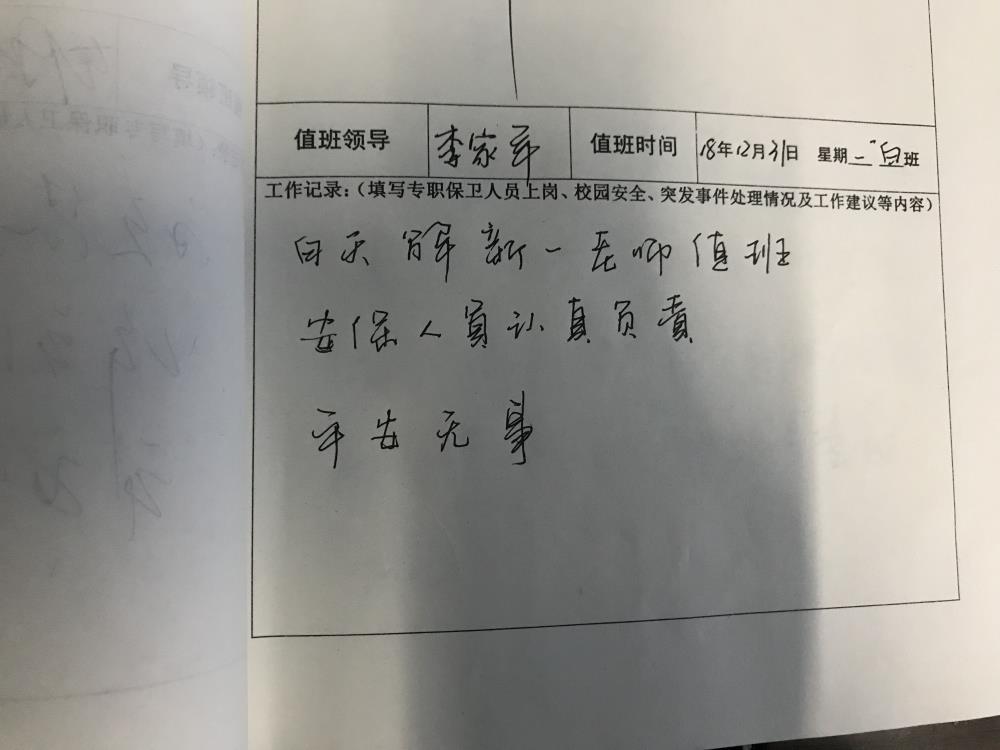 值班领导 李家平 值班时间 18年12月31日 星期一"白班
工作记录:(填写专职保卫人员上岗、校园安全、突发事件处理情况及工作建议等内容)
白天 解新一老师值班
安保人员认真负责
平安无事